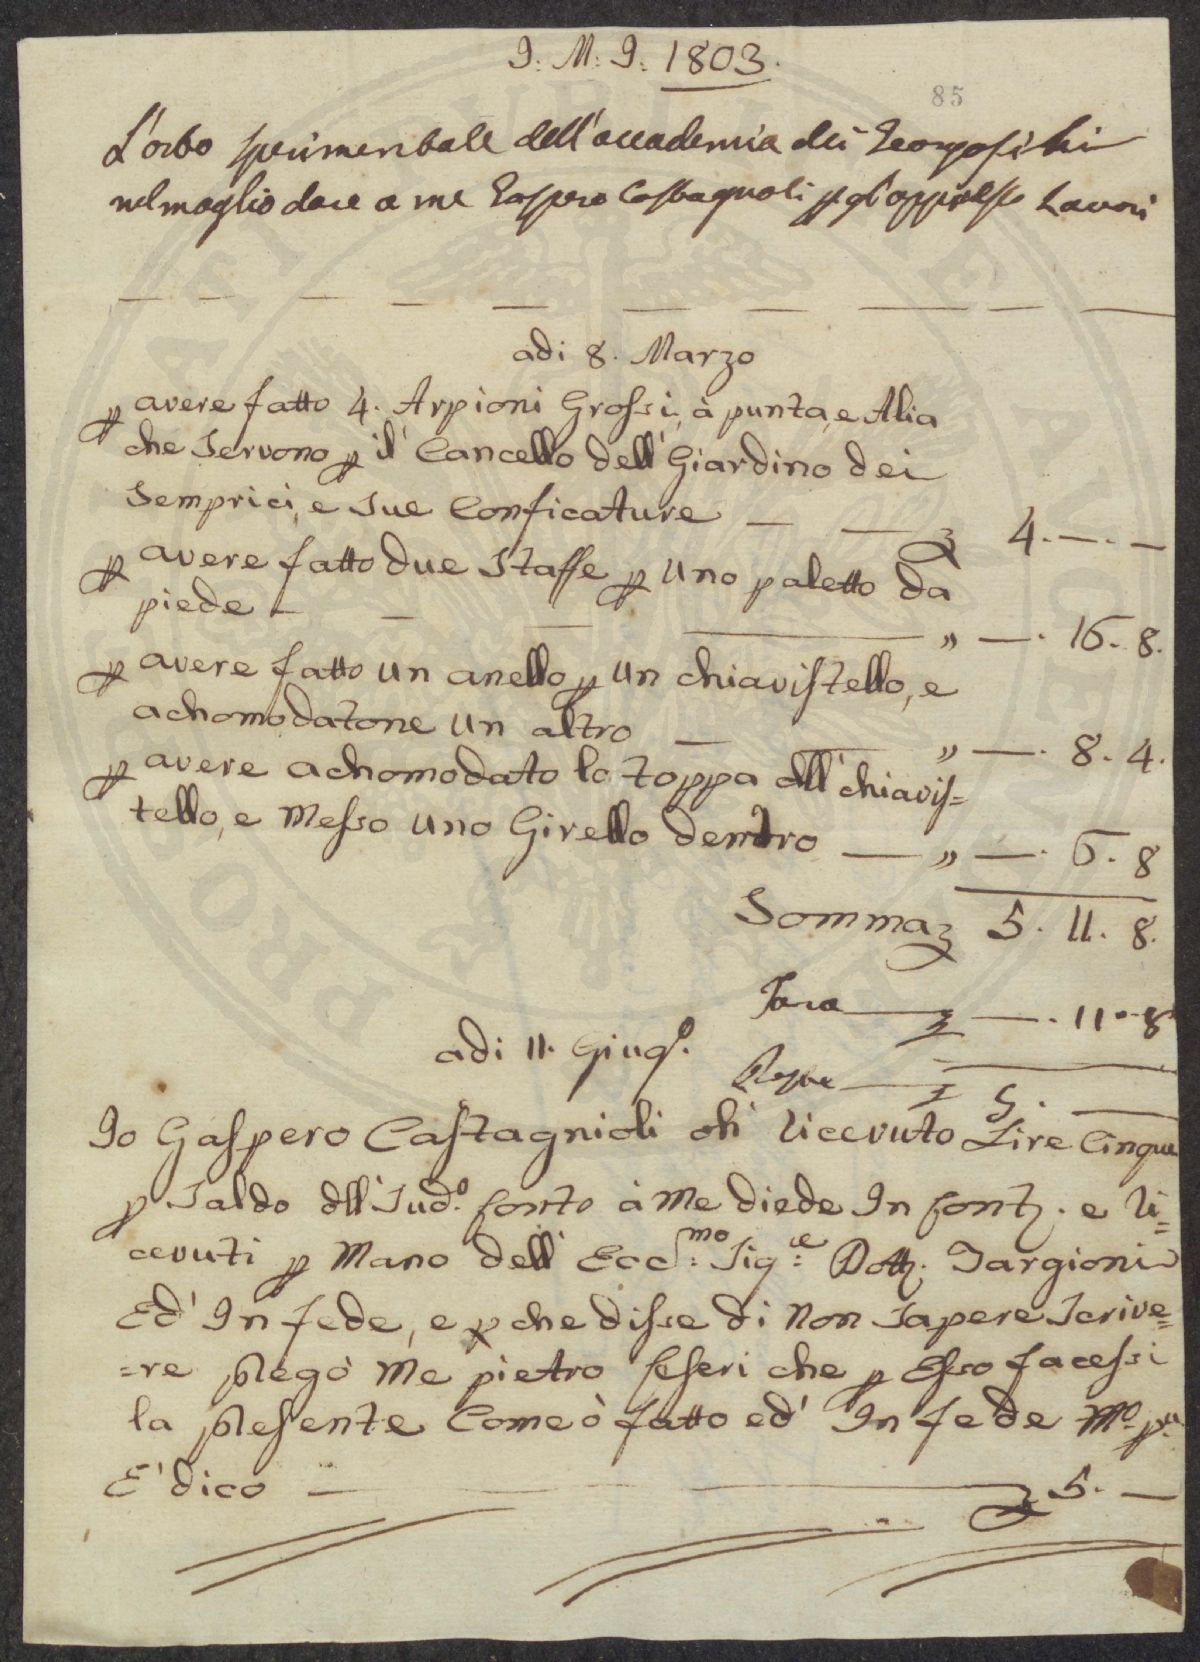 J. M. J. 1803.
85
L'orto sperimentale dell'accademia dei Georgofili
nel maglio dare a me Gaspero Castagnoli p gl'appresso Lavori
adi 8. Marzo
p avere fatto 4. Arpioni Grossi, à punta, e Alia
che Servono p il Cancello dell Giardino dei
Semprici, e Sue Conficature — — 4. —. —
p avere fatto due Staffe p uno paletto da
piede — — — — " —. 16. 8.
p avere fatto un anello p un chiavistello, e
achomodatone un altro — — " —. 8. 4.
p avere achomodato la toppa all' chiavis=
tello, e Messo uno Girello dentro — " —. 6. 8
Somma 5. 11. 8.
Tara — —. 11. 8
adi 11. Giugo.
Resta — 5. —
Io Gaspero Castagnioli ohi ricevuto Lire Cinque
p Saldo dll' Sudo. Conto à Me diede In Cont. e ri=
cevuti p Mano dell' Eccmo: Sigre: Dott. Targioni
Ed' In fede, e p che disse di Non Sapere Scrive=
=re pregò Me pietro Ceseri che p Esso facessi
la presente Come ò fatto ed' In fede Mo. pa.
E' dico — 5. —